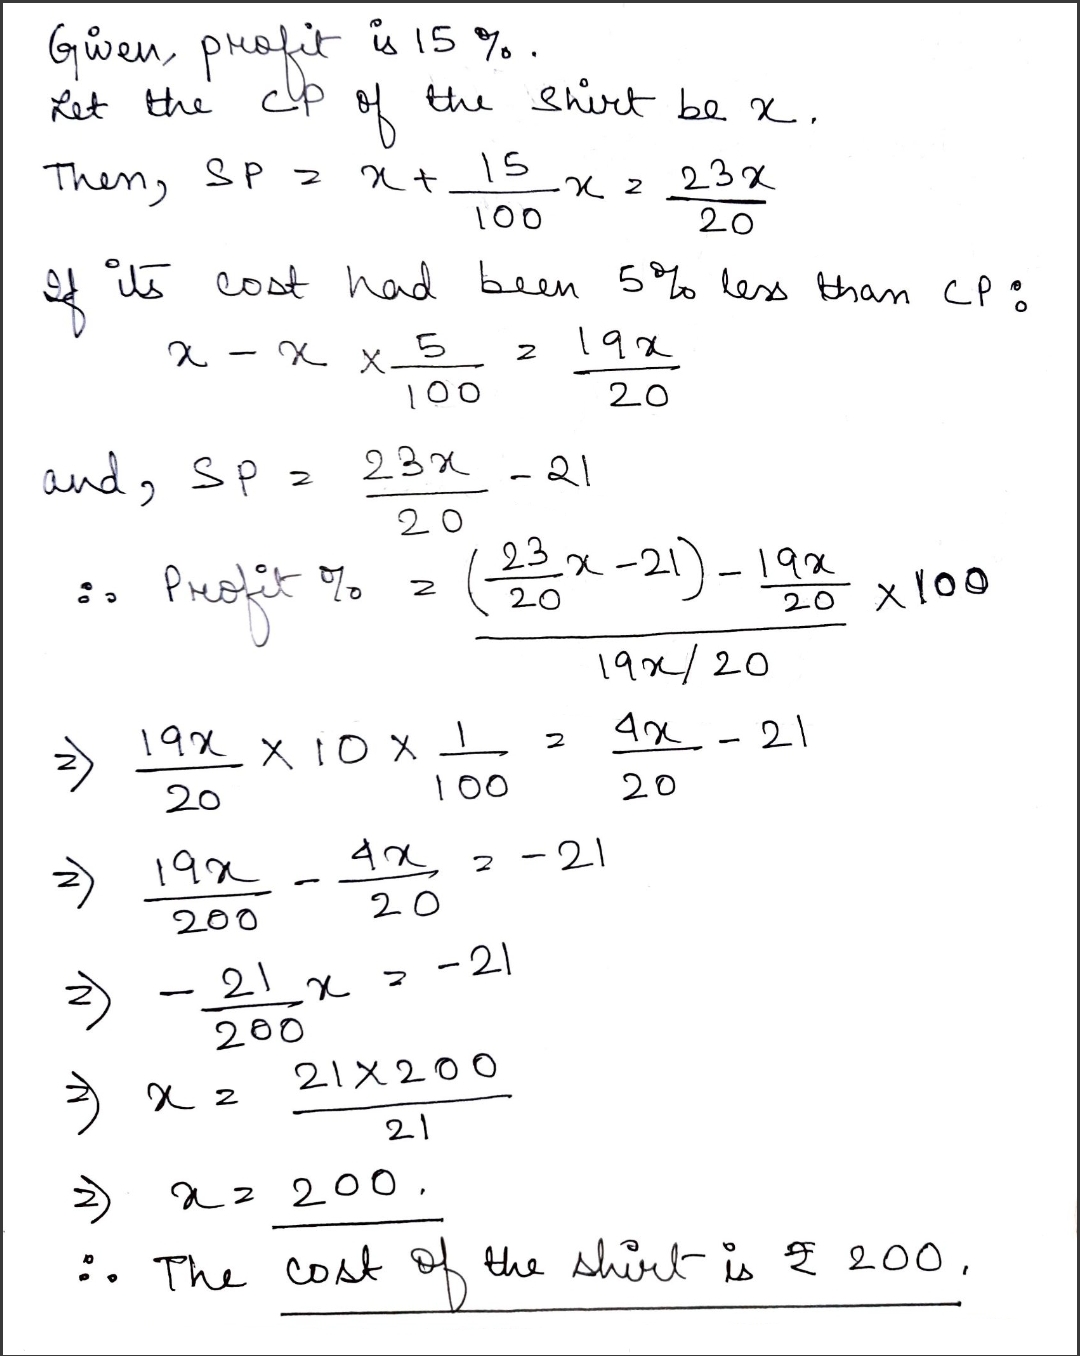 Given, profit is 15 %.
Let the CP of the shirt be x.
Then, SP = x + 15/100 x = 23x/20
If its cost had been 5% less than CP:
x - x × 5/100 = 19x/20
and, SP = 23x/20 - 21
∴ Profit % = ((23/20 x - 21) - 19x/20)/(19x/20) × 100
⇒ 19x/20 × 10 × 1/100 = 4x/20 - 21
⇒ 19x/200 - 4x/20 = -21
⇒ - 21/200 x = -21
⇒ x = 21×200/21
⇒ x = 200.
∴ The cost of the shirt is ₹ 200.